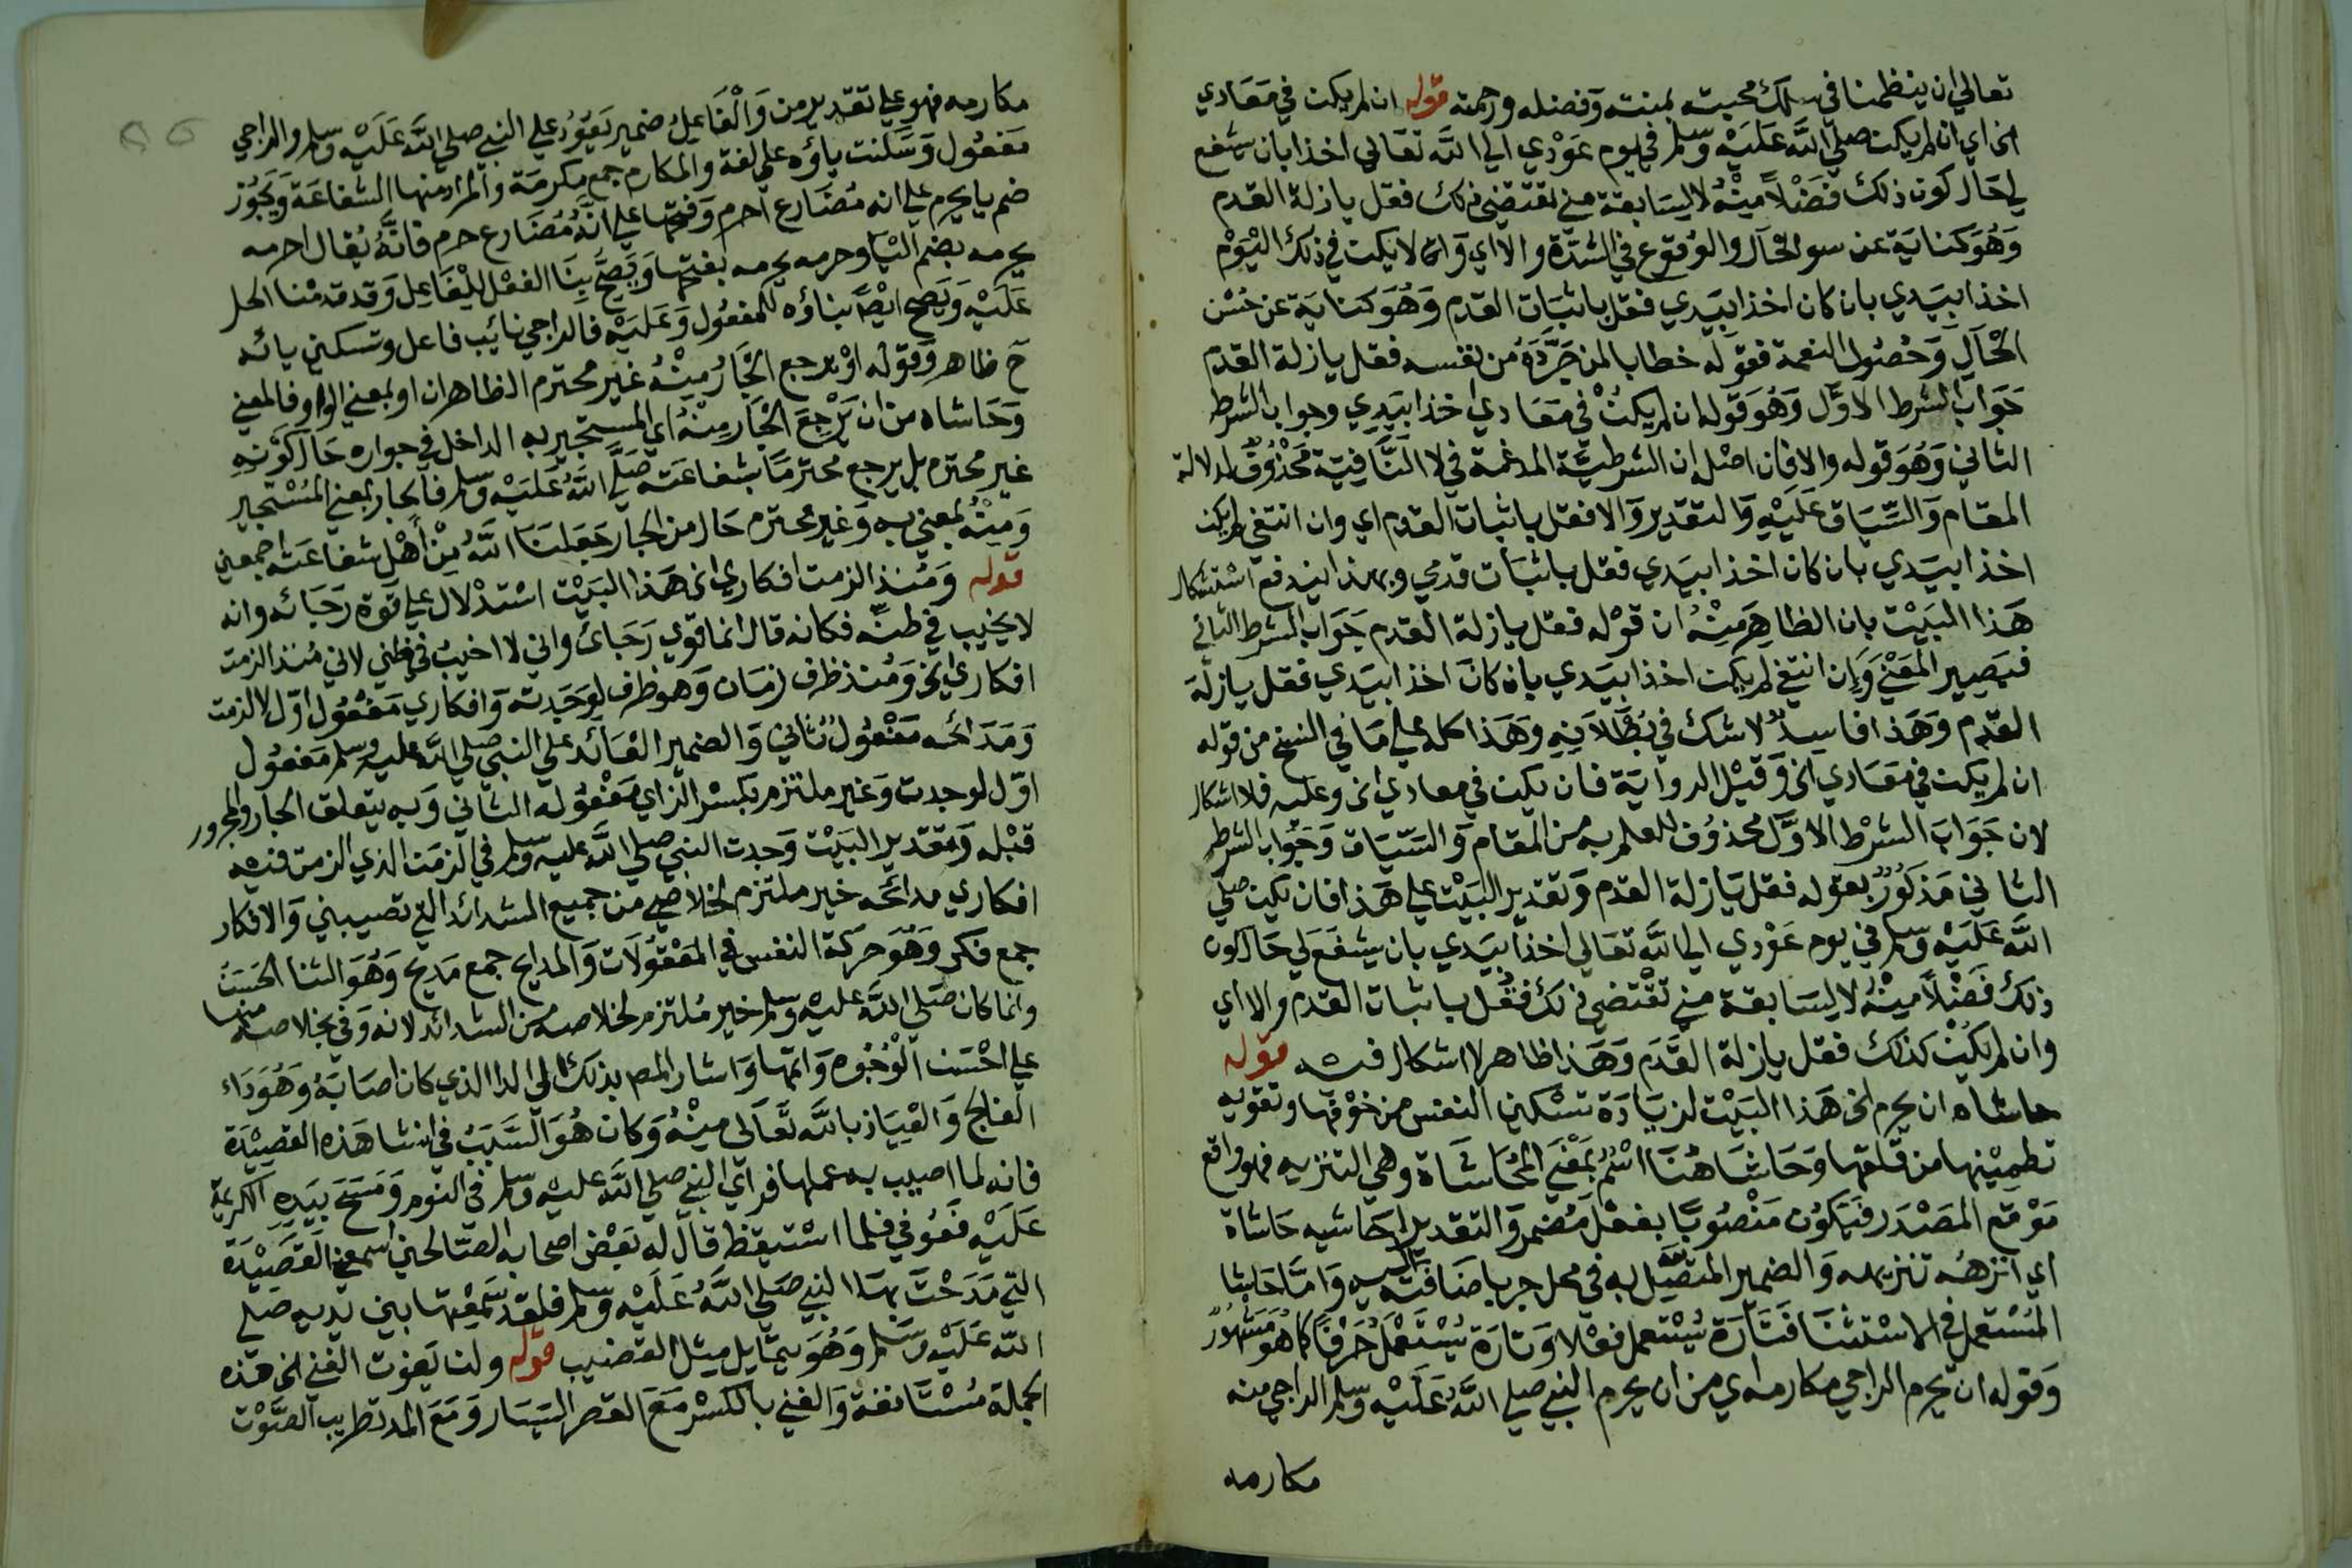 تعالي ان ينظمنا في سلك محبته بمنته وفضله ورحمته قوله ان لم يكن في معادي
الخ اي ان لم يكن صلي الله عليه وسلم في يوم عودي الي الله تعالي اخذا بان يشفع
لي حال كون ذلك فضلاً منه لا لسابقة مني تقتضي ذلك فقل يا زلة القدم
وهو كناية عن سو الحال والوقوع في الشدة والا اي وان لا يكن في ذلك اليوم
اخذا بيدي بان كان اخذا بيدي فقل باثبات القدم وهو كناية عن حسن
الحال وحصول النعمة فقوله خطابا لمن جرده من نفسه فقل يا زلة القدم
جواب الشرط الاول وهو قوله ان لم يكن في معادي اخذا بيدي وجواب الشرط
الثاني وهو قوله والا فان اصله ان الشرطية المدغمة في لا النافية محذوف لدلالة
المقام والسياق عليه والتقدير والا فقل باثبات القدم اي وان انتفي لم يكن
اخذا بيدي بان كان اخذا بيدي فقل باثبات قدمي وبهذا اندفع استشكال
هذا البيت بان الظاهر منه ان قوله فقل يا زلة القدم جواب الشرط الثاني
فيصير المعني وان انتفي لم يكن اخذا بيدي بان كان اخذا بيدي فقل يا زلة
القدم وهذا فاسد لا شك في بطلانه وهذا كله علي ما في النسخ من قوله
ان لم يكن في معادي الخ وقيل الرواية فان يكن في معادي الخ وعليه فلا اشكال
لان جواب الشرط الاول محذوف للعلم به من المقام والسياق وجواب الشرط
الثاني مذكور بقوله فقل يا زلة القدم وتقدير البيت علي هذا فان يكن صلي
الله عليه وسلم في يوم عودي الي الله تعالي اخذا بيدي بان يشفع لي حال كون
ذلك فضلاً منه لا لسابقة مني تقتضي ذلك فقل باثبات القدم والا اي
وان لم يكن كذلك فقل يا زلة القدم وهذا ظاهر لا اشكال فيه قوله
حاشاه ان يحرم الخ هذا البيت لزيادة تسكين النفس من خوفها وتقويه
تطمينها من قلقها وحاشا هنا اسم بمعني المحاشاة وهي التنزيه فهو واقع
موقع المصدر فيكون منصوبا بفعل مضمر والتقدير احاشيه حاشاة
اي انزهه تنزيهه والضمير المتصل به في محل جر باضافته اليه واما حاشا
المستعمل في الاستثنا فتارة يستعمل فعلا وتارة يستعمل حرفا كما هو مشهور
وقوله ان يحرم الراجي مكارمه اي من ان يحرم النبي صلي الله عليه وسلم الراجي منه
مكارمه
مكارمه فهو علي تقدير من والفاعل ضمير يعود علي النبي صلي الله عليه وسلم والراجي
مفعول وسكنت ياؤه علي لغة والمكارم جمع مكرمة والمراد منها الشفاعة ويجوز
ضم يا يحرم علي انه مضارع احرم وفتحها علي انه مضارع حرم فانه يقال احرمه
يحرمه بضم اليا وحرمه يحرمه بفتحها ويصح بنا الفعل للفاعل وقد قدمنا الحل
عليه ويصح ايضا بناؤه للمفعول وعليه فالراجي نائب فاعل وتسكين يائه
ح ظاهر وقوله او يرجع الجار منه غير محترم الظاهر ان او بمعني الواو فالمعني
وحاشاه من ان يرجع الجار منه اي المستجير به الداخل في جواره حال كونه
غير محترم بل يرجع محترما بشفاعته صلي الله عليه وسلم فالجار بمعني المستجير
ومنه بمعني به وغير محترم حال من الجار جعلنا الله من اهل شفاعته اجمعين
قوله ومنذ الزمت افكاري الخ هذا البيت استدلال علي قوة رجائه وانه
لا يخيب في ظنه فكانه قال انما قوي رجائ واني لا اخيب في ظني لاني منذ الزمت
افكاري الخ ومنذ ظرف زمان وهو ظرف لوجدته وافكاري مفعول اول لالزمت
ومدائحه مفعول ثاني والضمير العائد علي النبي صلي الله عليه وسلم مفعول
اول لوجدت وغير ملتزم بكسر الزاي مفعوله الثاني وبه يتعلق الجار والمجرور
قبله وتقدير البيت وجدت النبي صلي الله عليه وسلم في الزمن الذي الزمت فيه
افكاري مدائحه خير ملتزم لخلاصي من جميع الشدائد التي تصيبني والافكار
جمع فكر وهو حركة النفس في المعقولات والمدايح جمع مديح وهو الثنا الحسن
وانما كان صلي الله عليه وسلم خير ملتزم لخلاصه من الشدائد لانه وفي بخلاصه منها
علي احسن الوجوه واتمها واشار المص بذلك الي الدا الذي كان اصابه وهو داء
الفالج والعياذ بالله تعالي منه وكان هو السبب في انشا هذه القصيدة
فانه لما اصيب به عملها فراي النبي صلي الله عليه وسلم في النوم ومسح بيده الكريمة
عليه فعوفي فلما استيقظ قال له بعض اصحابه الصالحين اسمعني القصيدة
التي مدحت بها النبي صلي الله عليه وسلم فلقد سمعتها بين يديه صلي
الله عليه وسلم وهو يتمايل مثل القضيب قوله ولن يفوت الغني الخ هذه
الجملة مستانفة والغني بالكسر مع القصر اليسار ومع المد تطريب الصوت